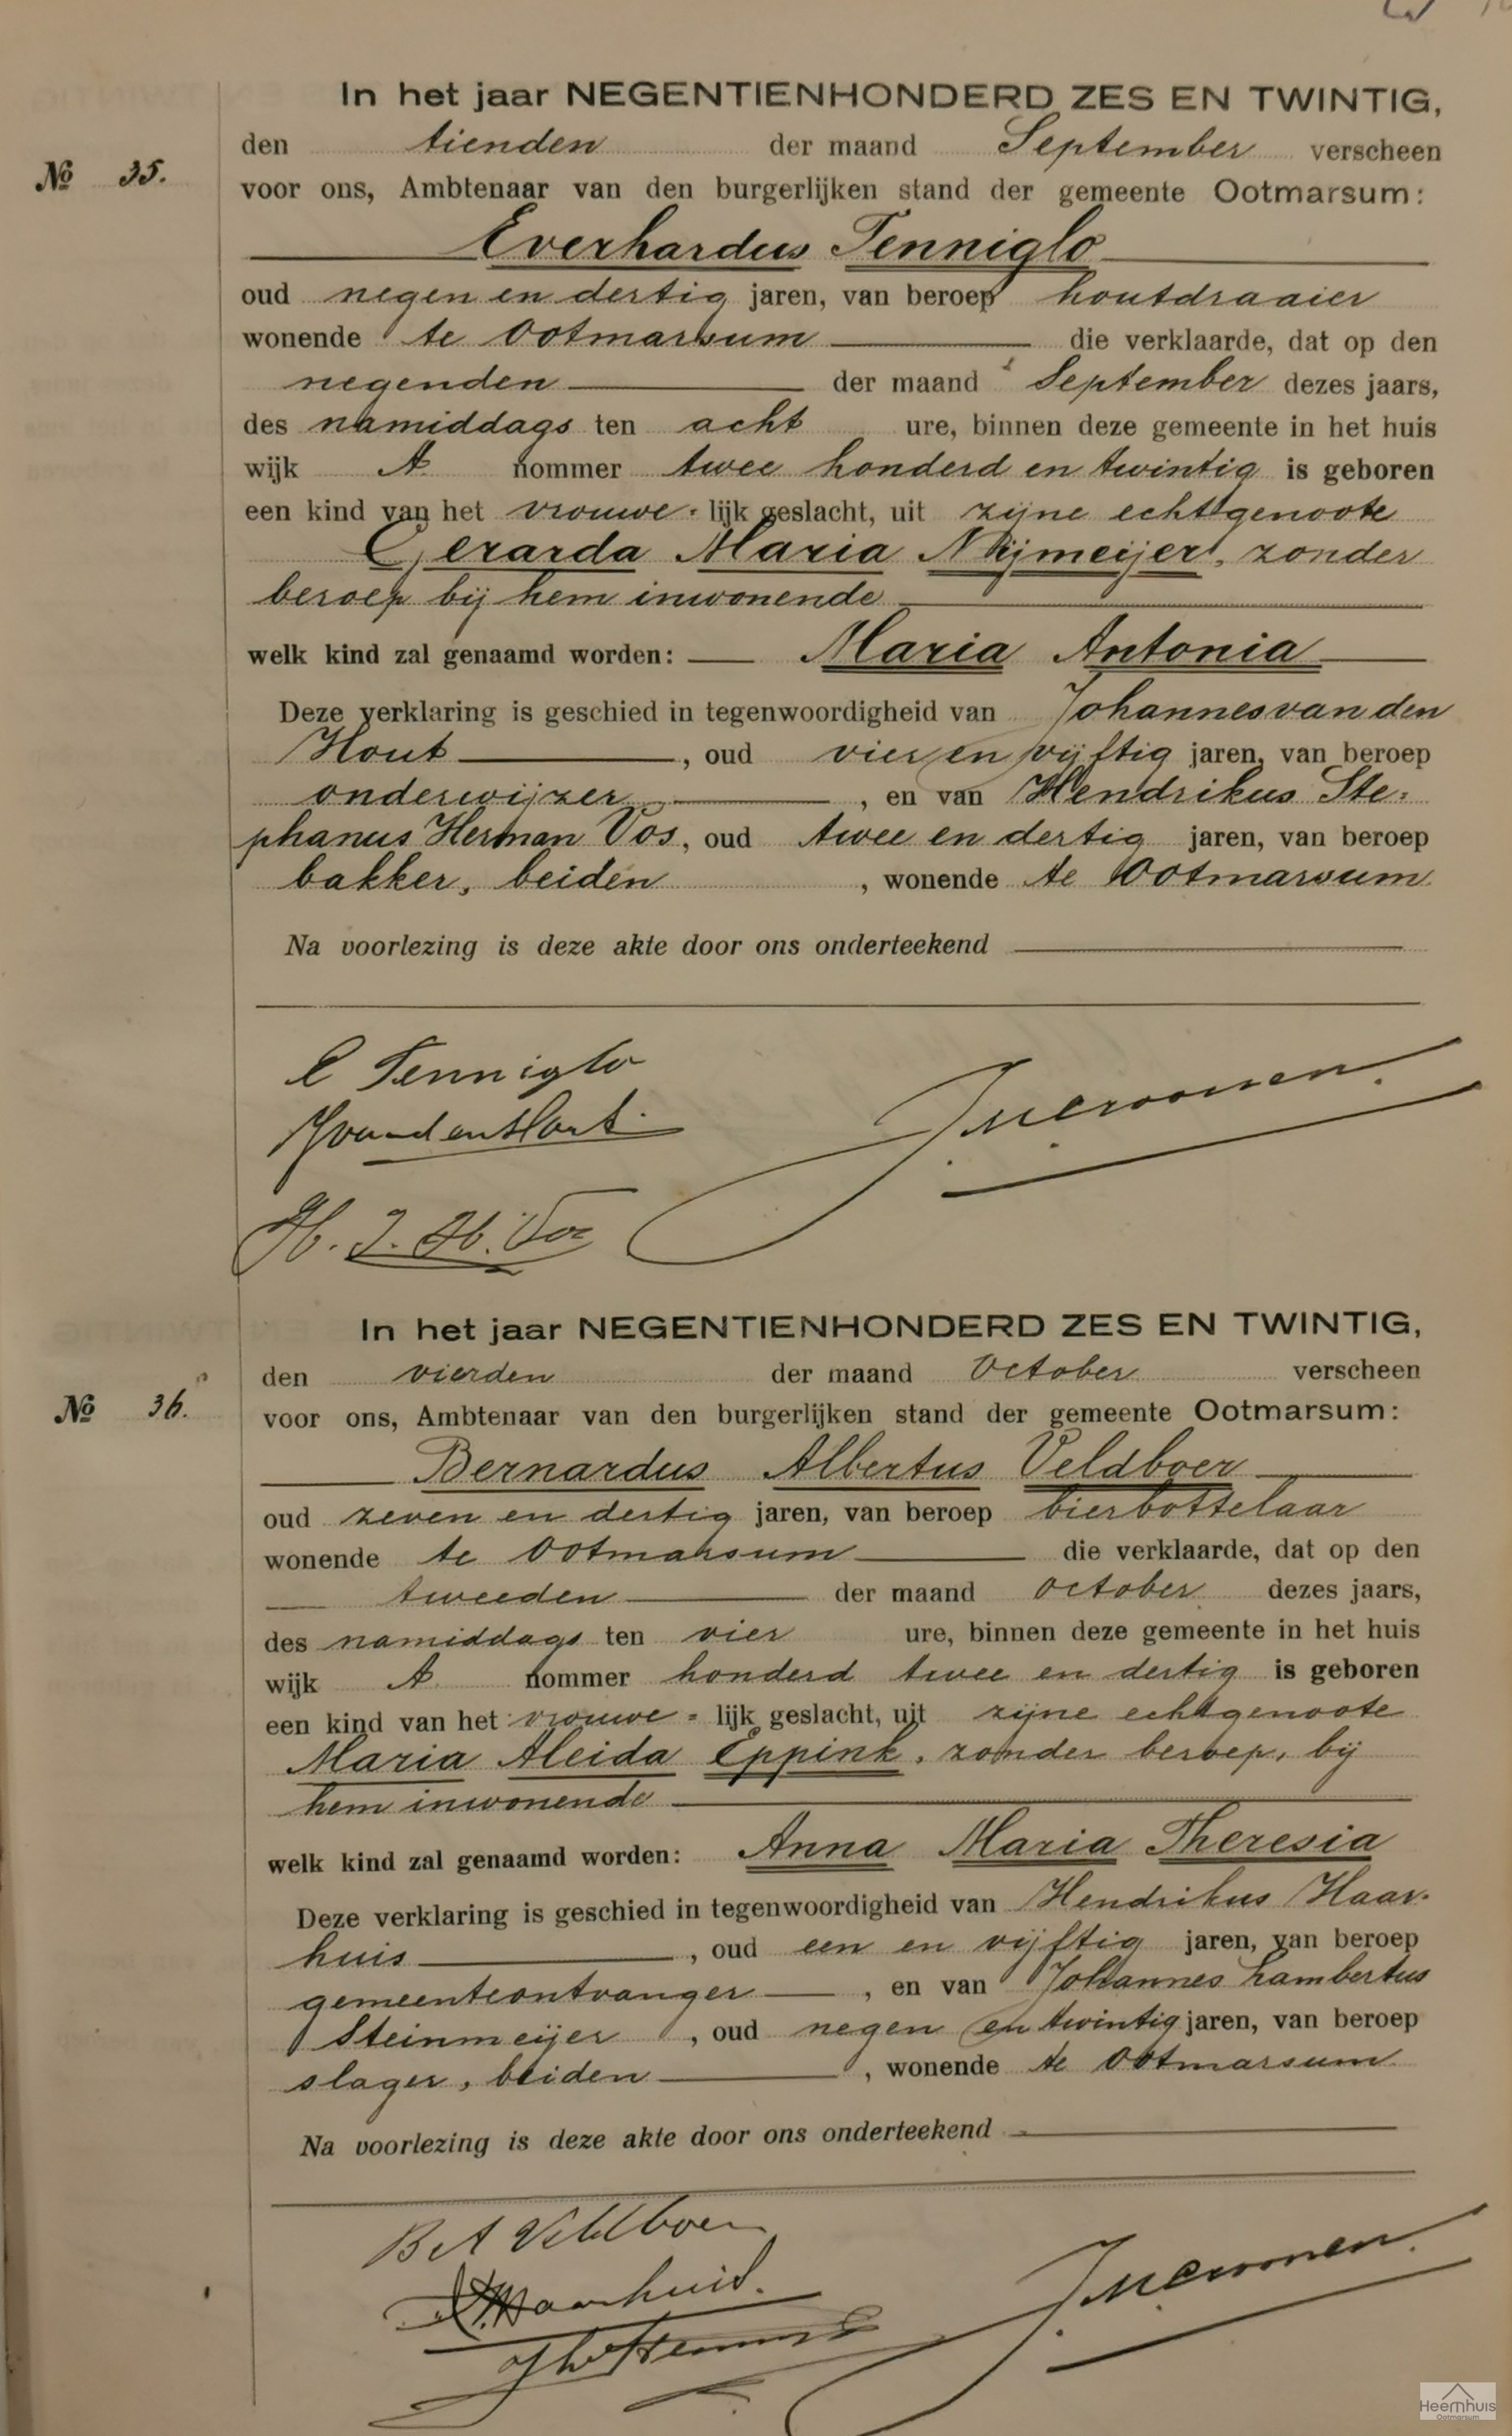 In het jaar NEGENTIENHONDERD ZES EN TWINTIG,
den tienden der maand September verscheen
№ 35.
voor ons, Ambtenaar van den burgerlijken stand der gemeente Ootmarsum:
Everhardus Tenniglo
oud negen en dertig jaren, van beroep houtdraaier
wonende te Ootmarsum die verklaarde, dat op den
negenden der maand September dezes jaars,
des namiddags ten acht ure, binnen deze gemeente in het huis
wijk A nommer twee honderd en twintig is geboren
een kind van het vrouwe-lijk geslacht, uit zijne echtgenoote
Gerarda Maria Nijmeijer, zonder
beroep bij hem inwonende
welk kind zal genaamd worden: Maria Antonia
Deze verklaring is geschied in tegenwoordigheid van Johannes van den
Hout, oud vier en vijftig jaren, van beroep
onderwijzer, en van Hendrikus Ste-
phanus Herman Vos, oud twee en dertig jaren, van beroep
bakker, beiden, wonende te Ootmarsum
Na voorlezing is deze akte door ons onderteekend
E Tenniglo
JvandenHout
H. S. H. Vos
In het jaar NEGENTIENHONDERD ZES EN TWINTIG,
den vierden der maand October verscheen
№ 36.
voor ons, Ambtenaar van den burgerlijken stand der gemeente Ootmarsum:
Bernardus Albertus Veldboer
oud zeven en dertig jaren, van beroep bierbottelaar
wonende te Ootmarsum die verklaarde, dat op den
tweeden der maand October dezes jaars,
des namiddags ten vier ure, binnen deze gemeente in het huis
wijk A. nommer honderd twee en dertig is geboren
een kind van het vrouwe-lijk geslacht, uit zijne echtgenoote
Maria Aleida Eppink, zonder beroep, bij
hem inwonende
welk kind zal genaamd worden: Anna Maria Theresia
Deze verklaring is geschied in tegenwoordigheid van Hendrikus Haar-
huis, oud een en vijftig jaren, van beroep
gemeenteontvanger, en van Johannes Lambertus
Steinmeijer, oud negen en twintig jaren, van beroep
slager, beiden, wonende te Ootmarsum
Na voorlezing is deze akte door ons onderteekend
B A Veldboer
Haarhuis.
Heemhuis
Ootmarsum